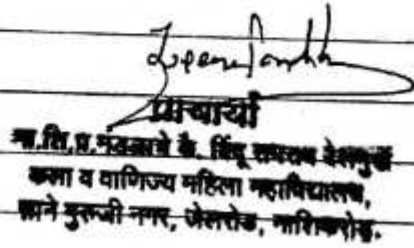 प्राचार्या
ना.शि.प्र.मंडळाचे कै. बिंदू रामराव देशमुख
कला व वाणिज्य महिला महाविद्यालय,
साने गुरूजी नगर, जेलरोड, नाशिकरोड.